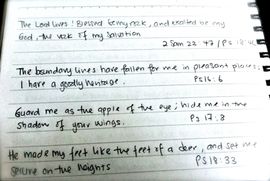 The Lord lives! Blessed be my rock, and exalted be my
God, the rock of my salvation
2 Sam 22 47 / Ps 18:46
The boundary lines have fallen for me in pleasant places,
I have a goodly heritage.
Ps 16:6
Guard me as the apple of the eye; hide me in the
shadow of your wings.
Ps 17:8
He made my feet like the feet of a deer, and set me
secure on the heights
PS 18:33